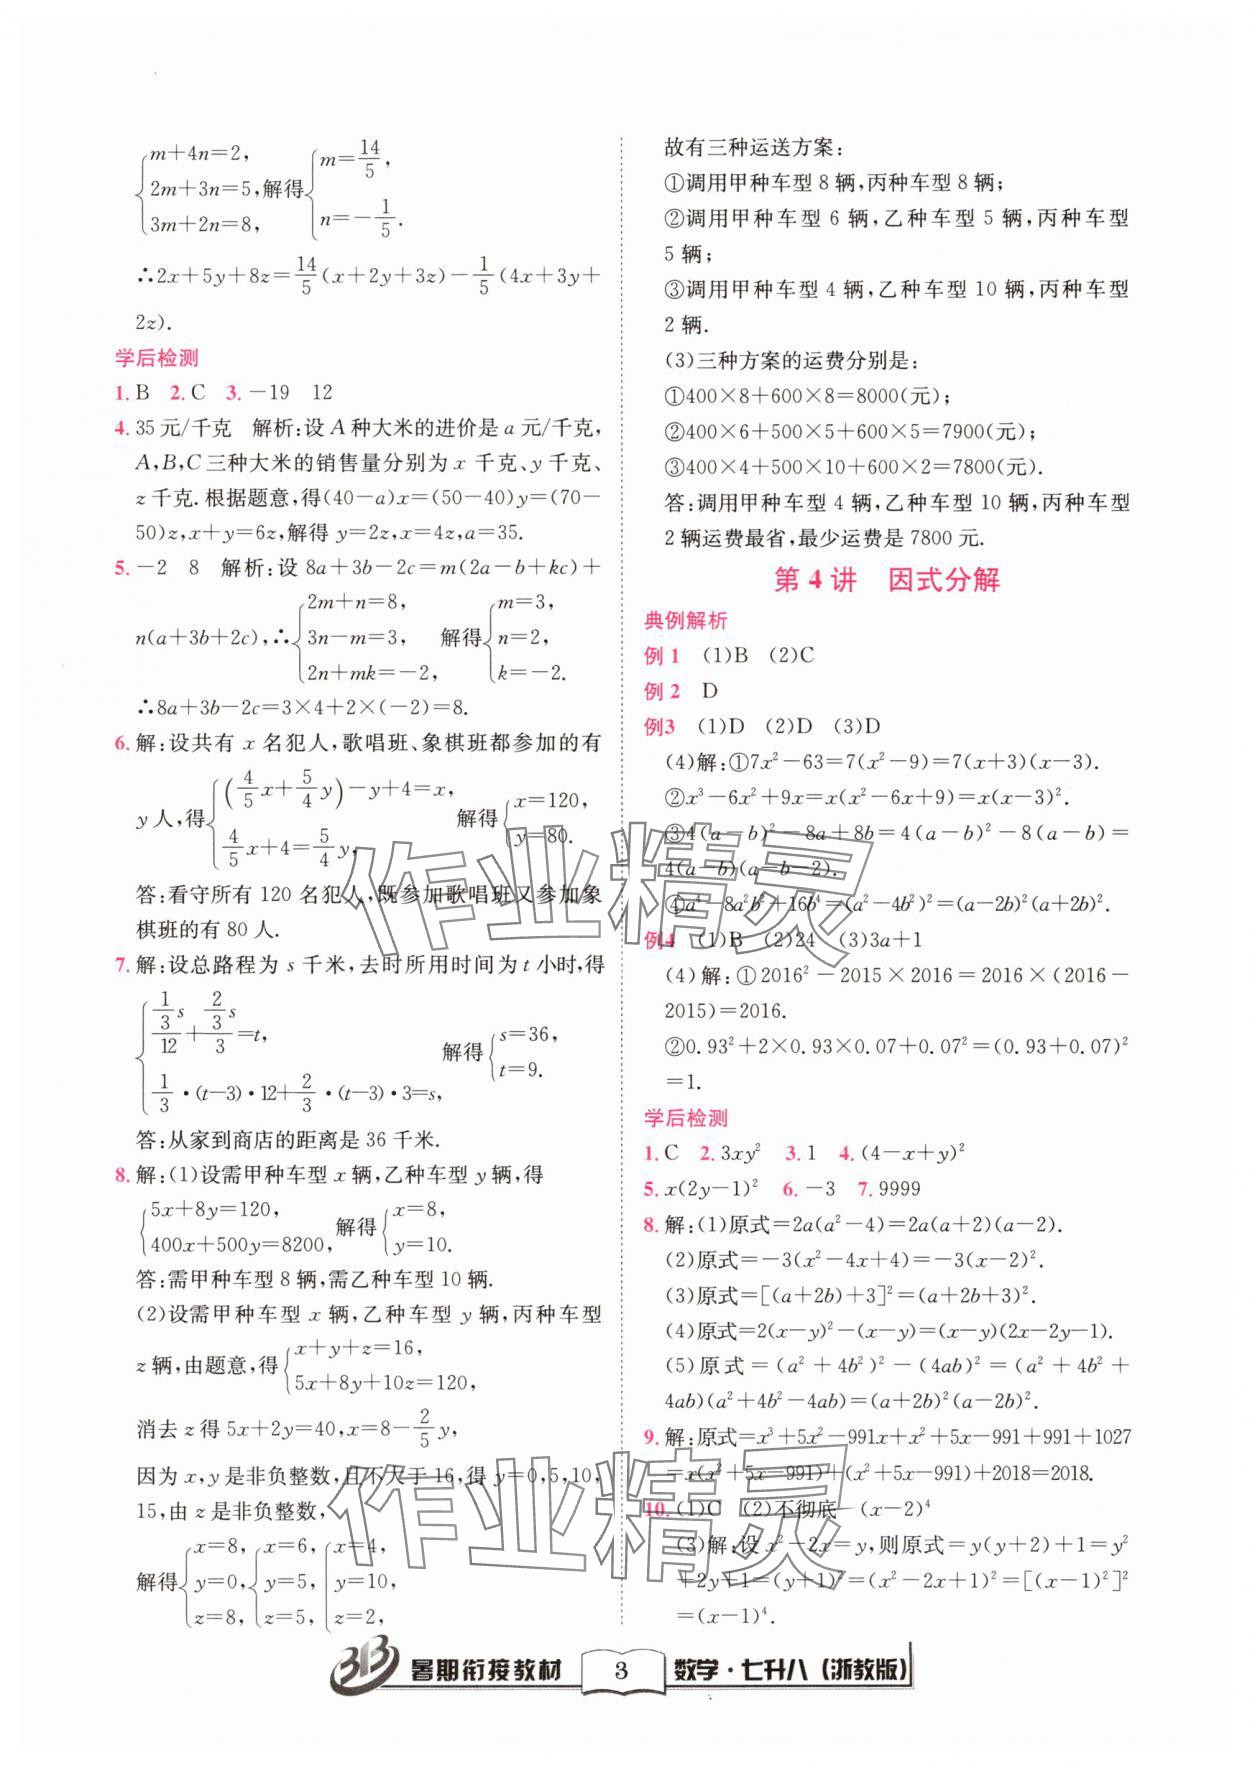 m+4n=2,
2m+3n=5,解得
3m+2n=8,
m=14/5,
n=-1/5.
∴2x+5y+8z=14/5(x+2y+3z)-1/5(4x+3y+
2z).
学后检测
1. B 2. C 3. -19 12
4. 35 元/千克 解析:设 A 种大米的进价是 a 元/千克,
A,B,C 三种大米的销售量分别为 x 千克、y 千克、
z 千克. 根据题意,得(40-a)x=(50-40)y=(70-
50)z,x+y=6z,解得 y=2z,x=4z,a=35.
5. -2 8 解析:设 8a+3b-2c=m(2a-b+kc)+
n(a+3b+2c),∴{2m+n=8, 3n-m=3, 2n+mk=-2, 解得{m=3, n=2, k=-2.
∴8a+3b-2c=3×4+2×(-2)=8.
6. 解:设共有 x 名犯人,歌唱班、象棋班都参加的有
y 人,得{(4/5x+5/4y)-y+4=x, 4/5x+4=5/4y, 解得{x=120, y=80.
答:看守所有 120 名犯人,既参加歌唱班又参加象
棋班的有 80 人.
7. 解:设总路程为 s 千米,去时所用时间为 t 小时,得
{1/3s/12+2/3s/3=t, 1/3·(t-3)·12+2/3·(t-3)·3=s, 解得{s=36, t=9.
答:从家到商店的距离是 36 千米.
8. 解:(1)设需甲种车型 x 辆,乙种车型 y 辆,得
{5x+8y=120, 400x+500y=8200, 解得{x=8, y=10.
答:需甲种车型 8 辆,需乙种车型 10 辆.
(2)设需甲种车型 x 辆,乙种车型 y 辆,丙种车型
z 辆,由题意,得{x+y+z=16, 5x+8y+10z=120,
消去 z 得 5x+2y=40,x=8-2/5y,
因为 x,y 是非负整数,且不大于 16,得 y=0,5,10,
15,由 z 是非负整数,
解得{x=8, y=0, z=8, {x=6, y=5, z=5, {x=4, y=10, z=2,
故有三种运送方案:
①调用甲种车型 8 辆,丙种车型 8 辆;
②调用甲种车型 6 辆,乙种车型 5 辆,丙种车型
5 辆;
③调用甲种车型 4 辆,乙种车型 10 辆,丙种车型
2 辆.
(3)三种方案的运费分别是:
①400×8+600×8=8000(元);
②400×6+500×5+600×5=7900(元);
③400×4+500×10+600×2=7800(元).
答:调用甲种车型 4 辆,乙种车型 10 辆,丙种车型
2 辆运费最省,最少运费是 7800 元.
第 4 讲 因式分解
典例解析
例 1 (1)B (2)C
例 2 D
例3 (1)D (2)D (3)D
(4)解:①7x²-63=7(x²-9)=7(x+3)(x-3).
②x³-6x²+9x=x(x²-6x+9)=x(x-3)².
③4(a-b)²-8a+8b=4(a-b)²-8(a-b)=
4(a-b)(a-b-2).
④a⁴-8a²b²+16b⁴=(a²-4b²)²=(a-2b)²(a+2b)².
例4 (1)B (2)24 (3)3a+1
(4)解:①2016²-2015×2016=2016×(2016-
2015)=2016.
②0.93²+2×0.93×0.07+0.07²=(0.93+0.07)²
=1.
学后检测
1. C 2. 3xy² 3. 1 4. (4-x+y)²
5. x(2y-1)² 6. -3 7. 9999
8. 解:(1)原式=2a(a²-4)=2a(a+2)(a-2).
(2)原式=-3(x²-4x+4)=-3(x-2)².
(3)原式=[(a+2b)+3]²=(a+2b+3)².
(4)原式=2(x-y)²-(x-y)=(x-y)(2x-2y-1).
(5)原式=(a²+4b²)²-(4ab)²=(a²+4b²+
4ab)(a²+4b²-4ab)=(a+2b)²(a-2b)².
9. 解:原式=x³+5x²-991x+x²+5x-991+991+1027
=x(x²+5x-991)+(x²+5x-991)+2018=2018.
10. (1)C (2)不彻底 (x-2)⁴
(3)解:设 x²-2x=y,则原式=y(y+2)+1=y²
+2y+1=(y+1)²=(x²-2x+1)²=[(x-1)²]²
=(x-1)⁴.
作业精灵
作业精灵
暑期衔接教材 3 数学·七升八(浙教版)